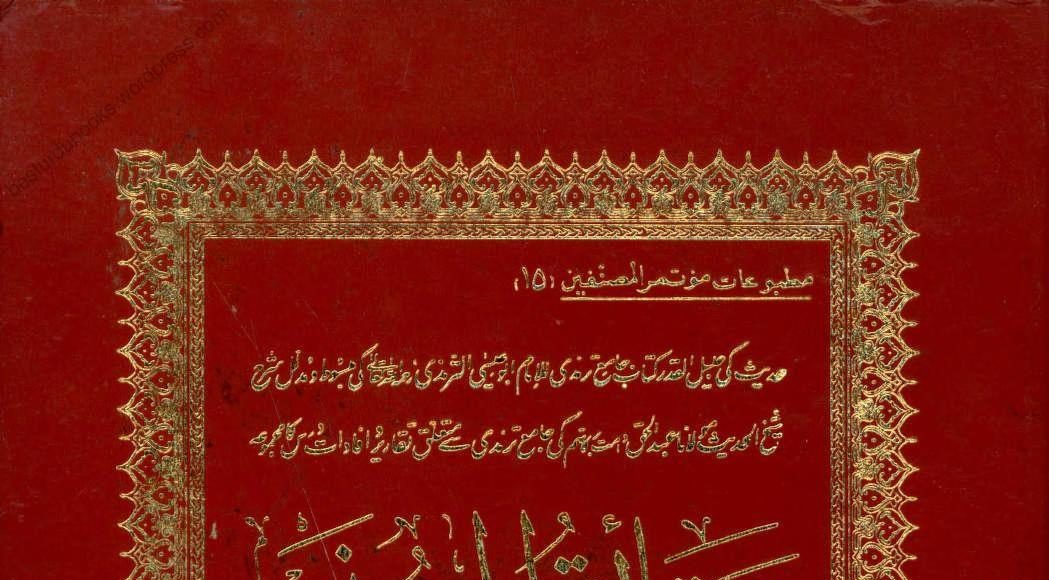 besturdubooks.wordpress.com
مطبوعات مؤتمر المصنفین (۱۵)
حدیث کی جلیل القدر کتاب جامع ترمذی للامام ابو عیسیٰ الترمذی رحمہ اللہ تعالیٰ کی مبسوط و مدلل شرح
شیخ الحدیث مولانا عبد الحق دامت برکاتہم کی جامع ترمذی سے متعلق تقاریر و افادات درس کا مجموعہ